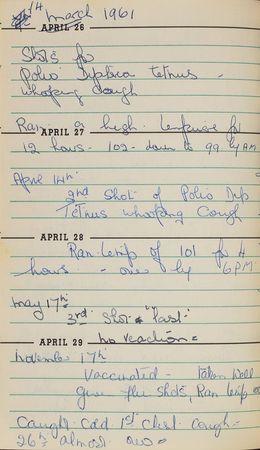 14 March 1961
APRIL 26
Shots for
Polio Diptheria Tetnus -
whooping cough
Ran a high tempture for
APRIL 27
12 hours - 102 - down to 99 by AM
April 14th
2nd Shot of Polio Dip
Tetnus whooping Cough -
APRIL 28
Ran temp of 101 for 4
hours - over by 6 PM
May 17th
3rd Shot "Last"
APRIL 29 no reaction -
November 17th
Vaccinated - Taken well
give flu shots, Ran temp
Caught Cold 1st Chest Cough -
26th almost over -